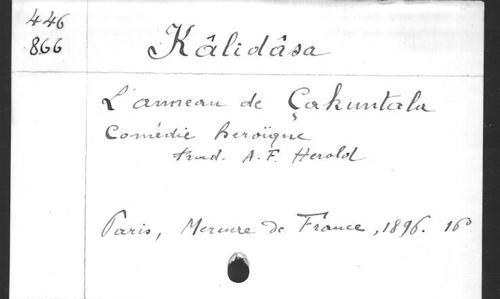 446
866
Kâlidâsa
L'anneau de Çakuntala
Comédie heroïque
trad. A. F. Herold
Paris, Mercure de France, 1896. 16º